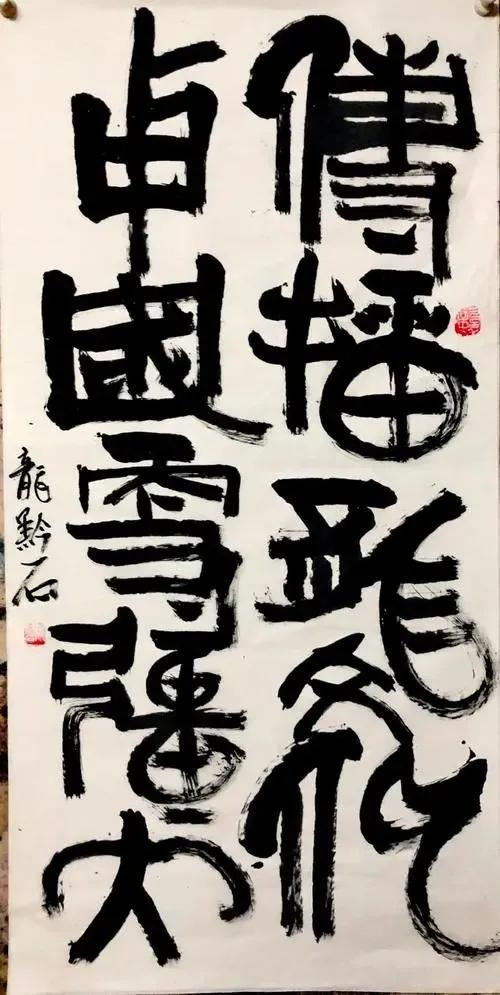 傳播龍文化
中國強大
龍黔石